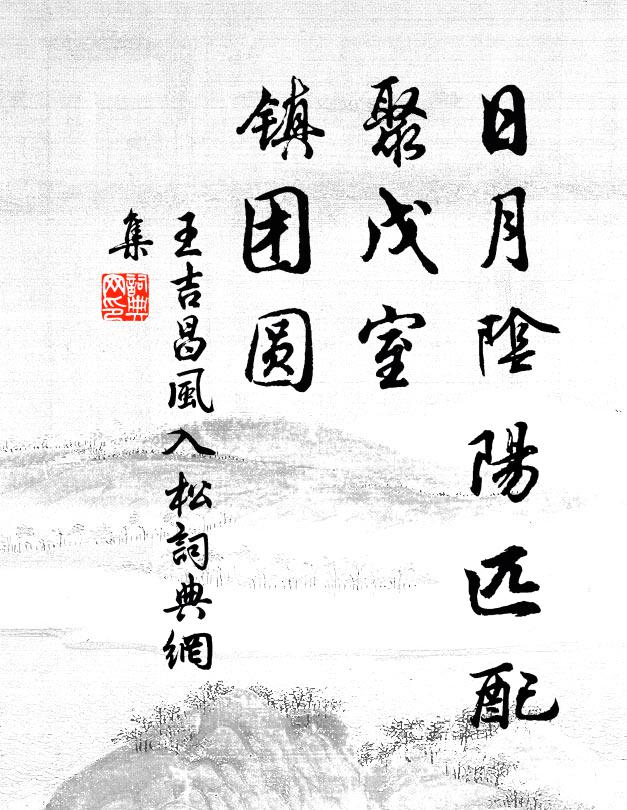 日月陰陽匹配
聚戊室
镇团圆
王吉昌風入松詞典網
集
詞典
网印